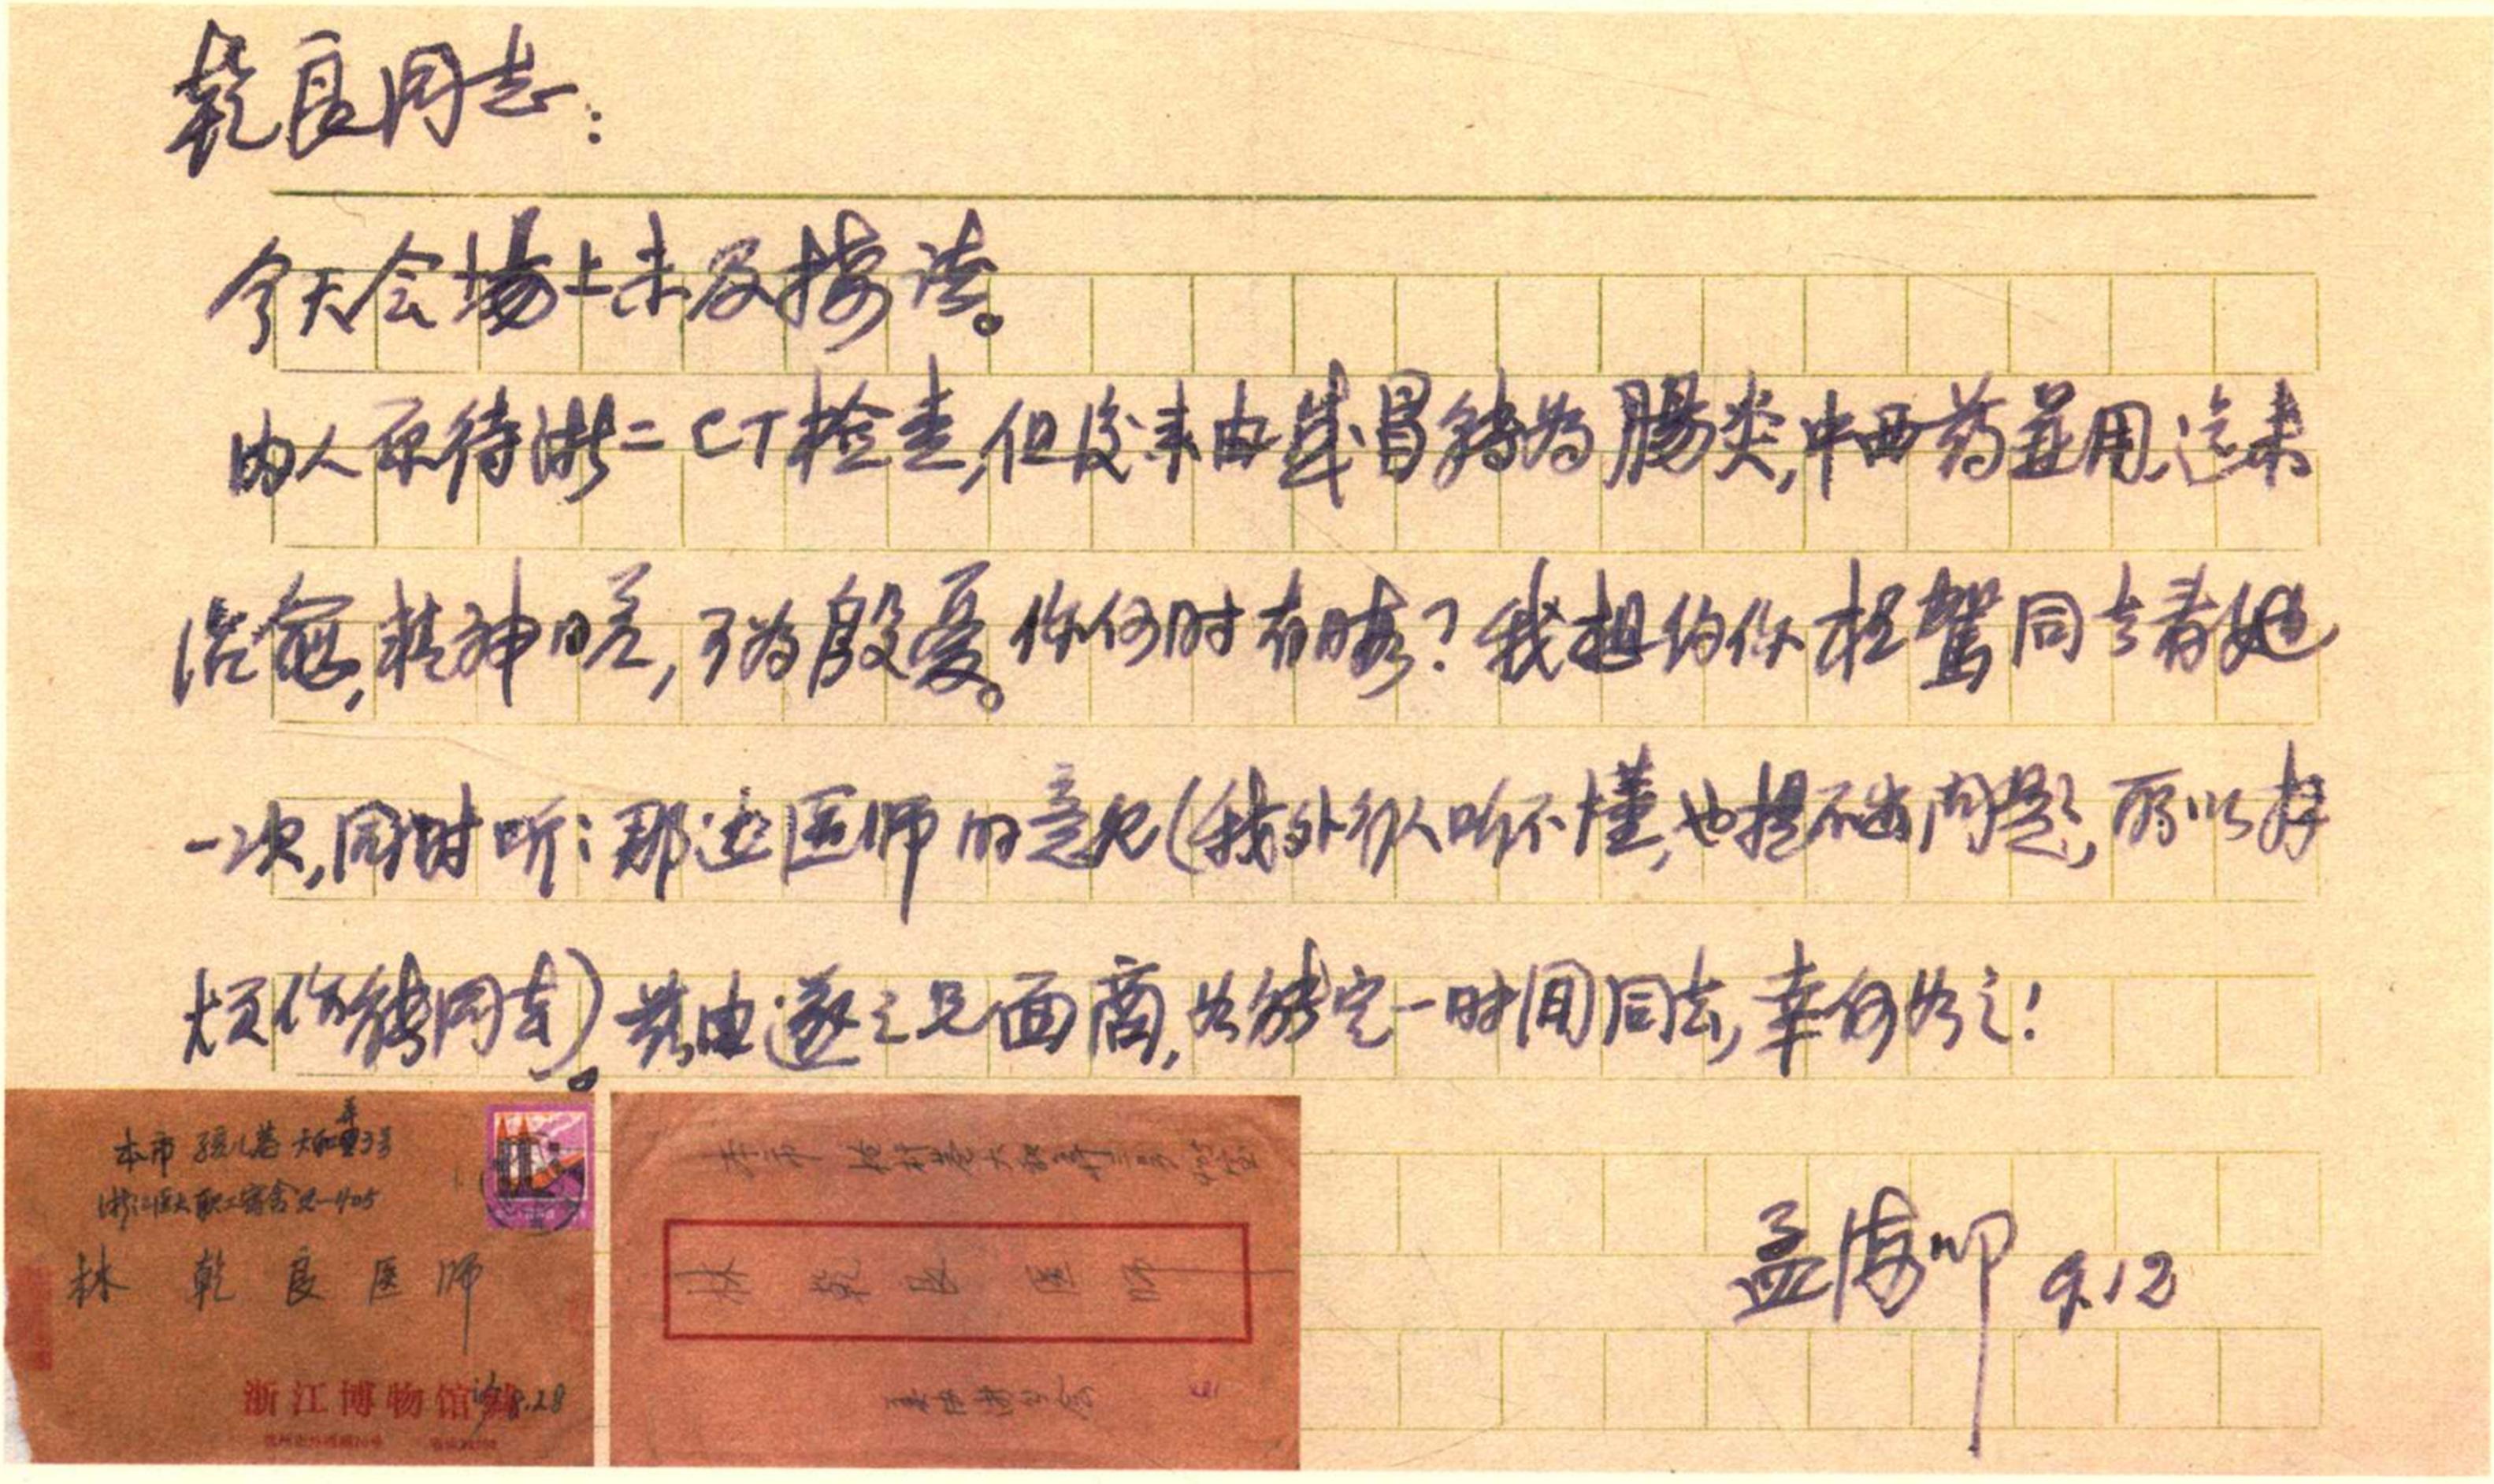 乾良同志:
今天会场上未及接谈。
内人原待浙二CT检查,但后来由感冒转为腸炎,中西药並用,迄未
治愈,精神日差,可为殷憂。你何时有暇?我想约你枉驾同去看她
一次,同时听:那边医师的意见(我外行人听不懂,也提不出问题,所以拜
烦你能同去)。兹由遂之兄面商,如能定一时间同去,幸何如之!
孟海叩 9.12
本市 孩儿巷 大和弄3号
浙江医大职工宿舍
林 乾 良 医 师
浙江博物馆 8.28
林 乾 良 医 师